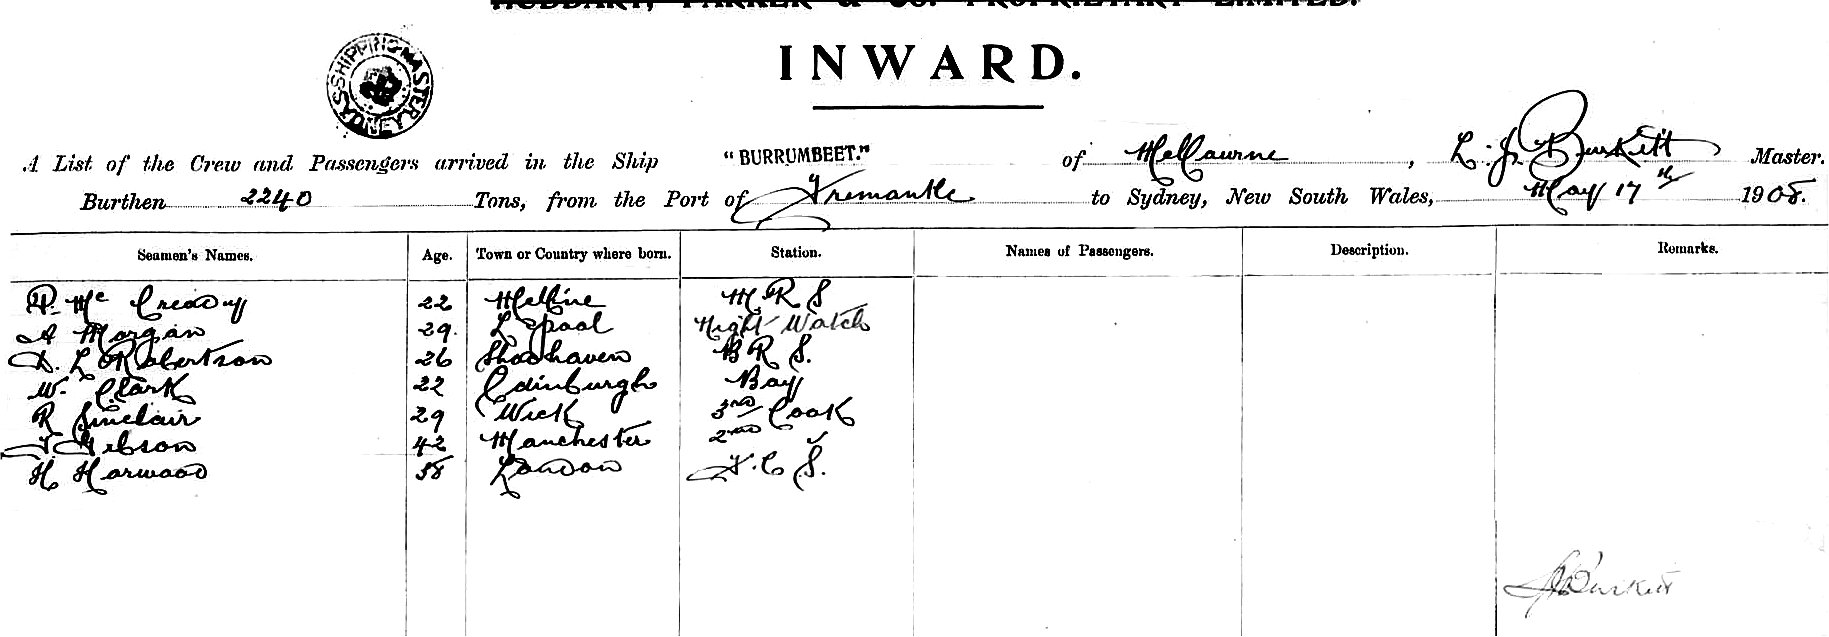 HUDDART, PARKER & CO. PROPRIETARY LIMITED.
INWARD.
SHIPPING MASTER SYDNEY
A List of the Crew and Passengers arrived in the Ship "BURRUMBEET." of Melbourne, L. J. Burkett Master.
Burthen 2240 Tons, from the Port of Fremantle to Sydney, New South Wales, May 17th 1908.
Seamen's Names. Age. Town or Country where born. Station. Names of Passengers. Description. Remarks.
P. Mc Cready 22 Melbne M R S
A Morgan 29. L'pool Night Watch
D. L Robertson 26 Shoalhaven B R S.
W. Clark 22 Edinburgh Bay
R Sinclair 29 Wick 3rd Cook
T Gibson 42 Manchester 2nd "
H Harwood 58 London F. C S.
Burkett